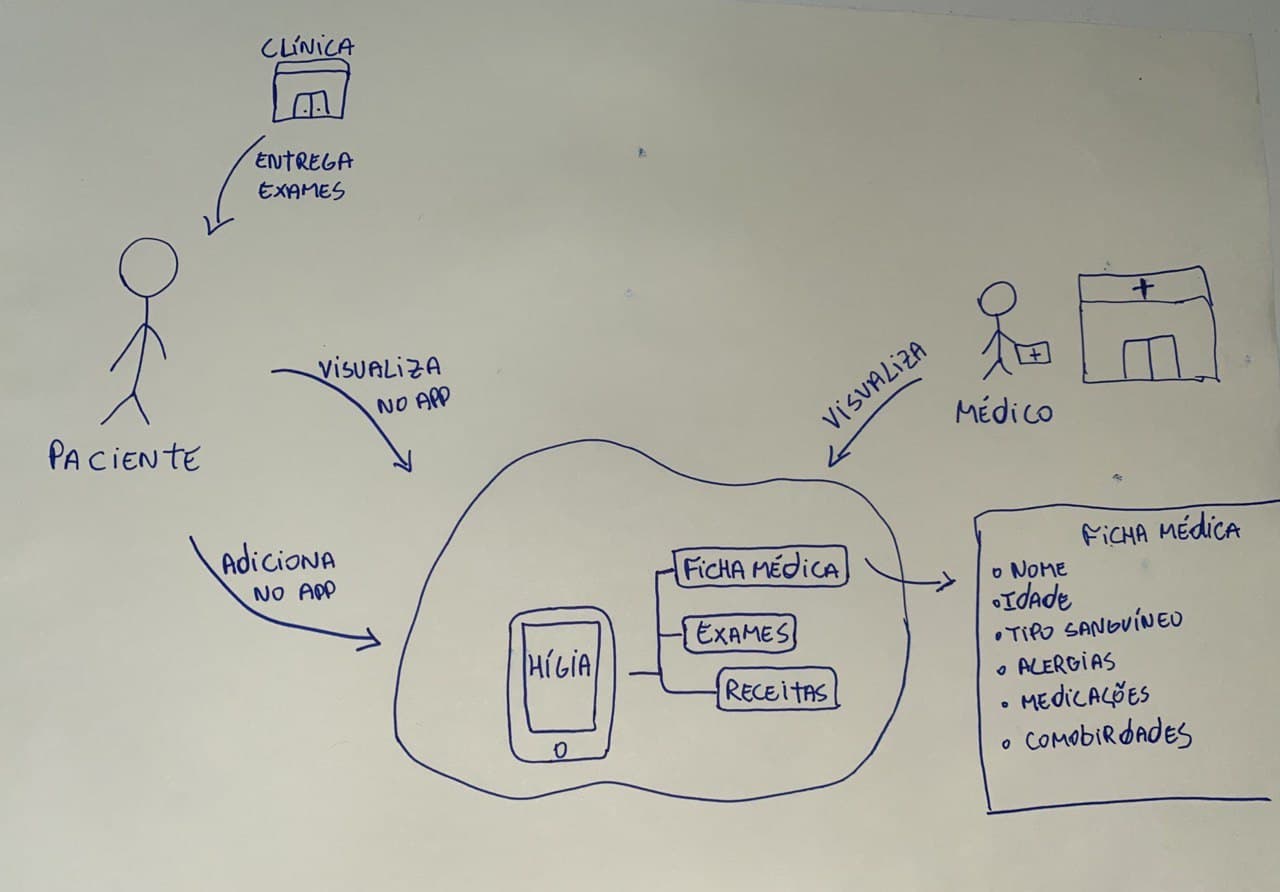 CLÍNICA
ENTREGA
EXAMES
PACIENTE
VISUALIZA
NO APP
ADICIONA
NO APP
VISUALIZA
MÉDICO
HÍGIA
FICHA MÉDICA
EXAMES
RECEITAS
FICHA MÉDICA
NOME
IDADE
TIPO SANGUÍNEO
ALERGIAS
MEDICAÇÕES
COMOBIRDADES